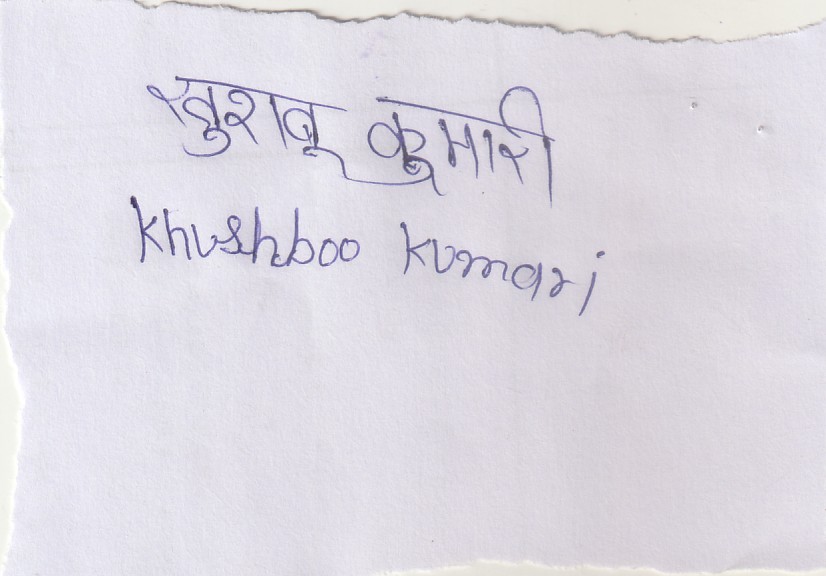 खुशबू कुमारी
Khushboo kumari